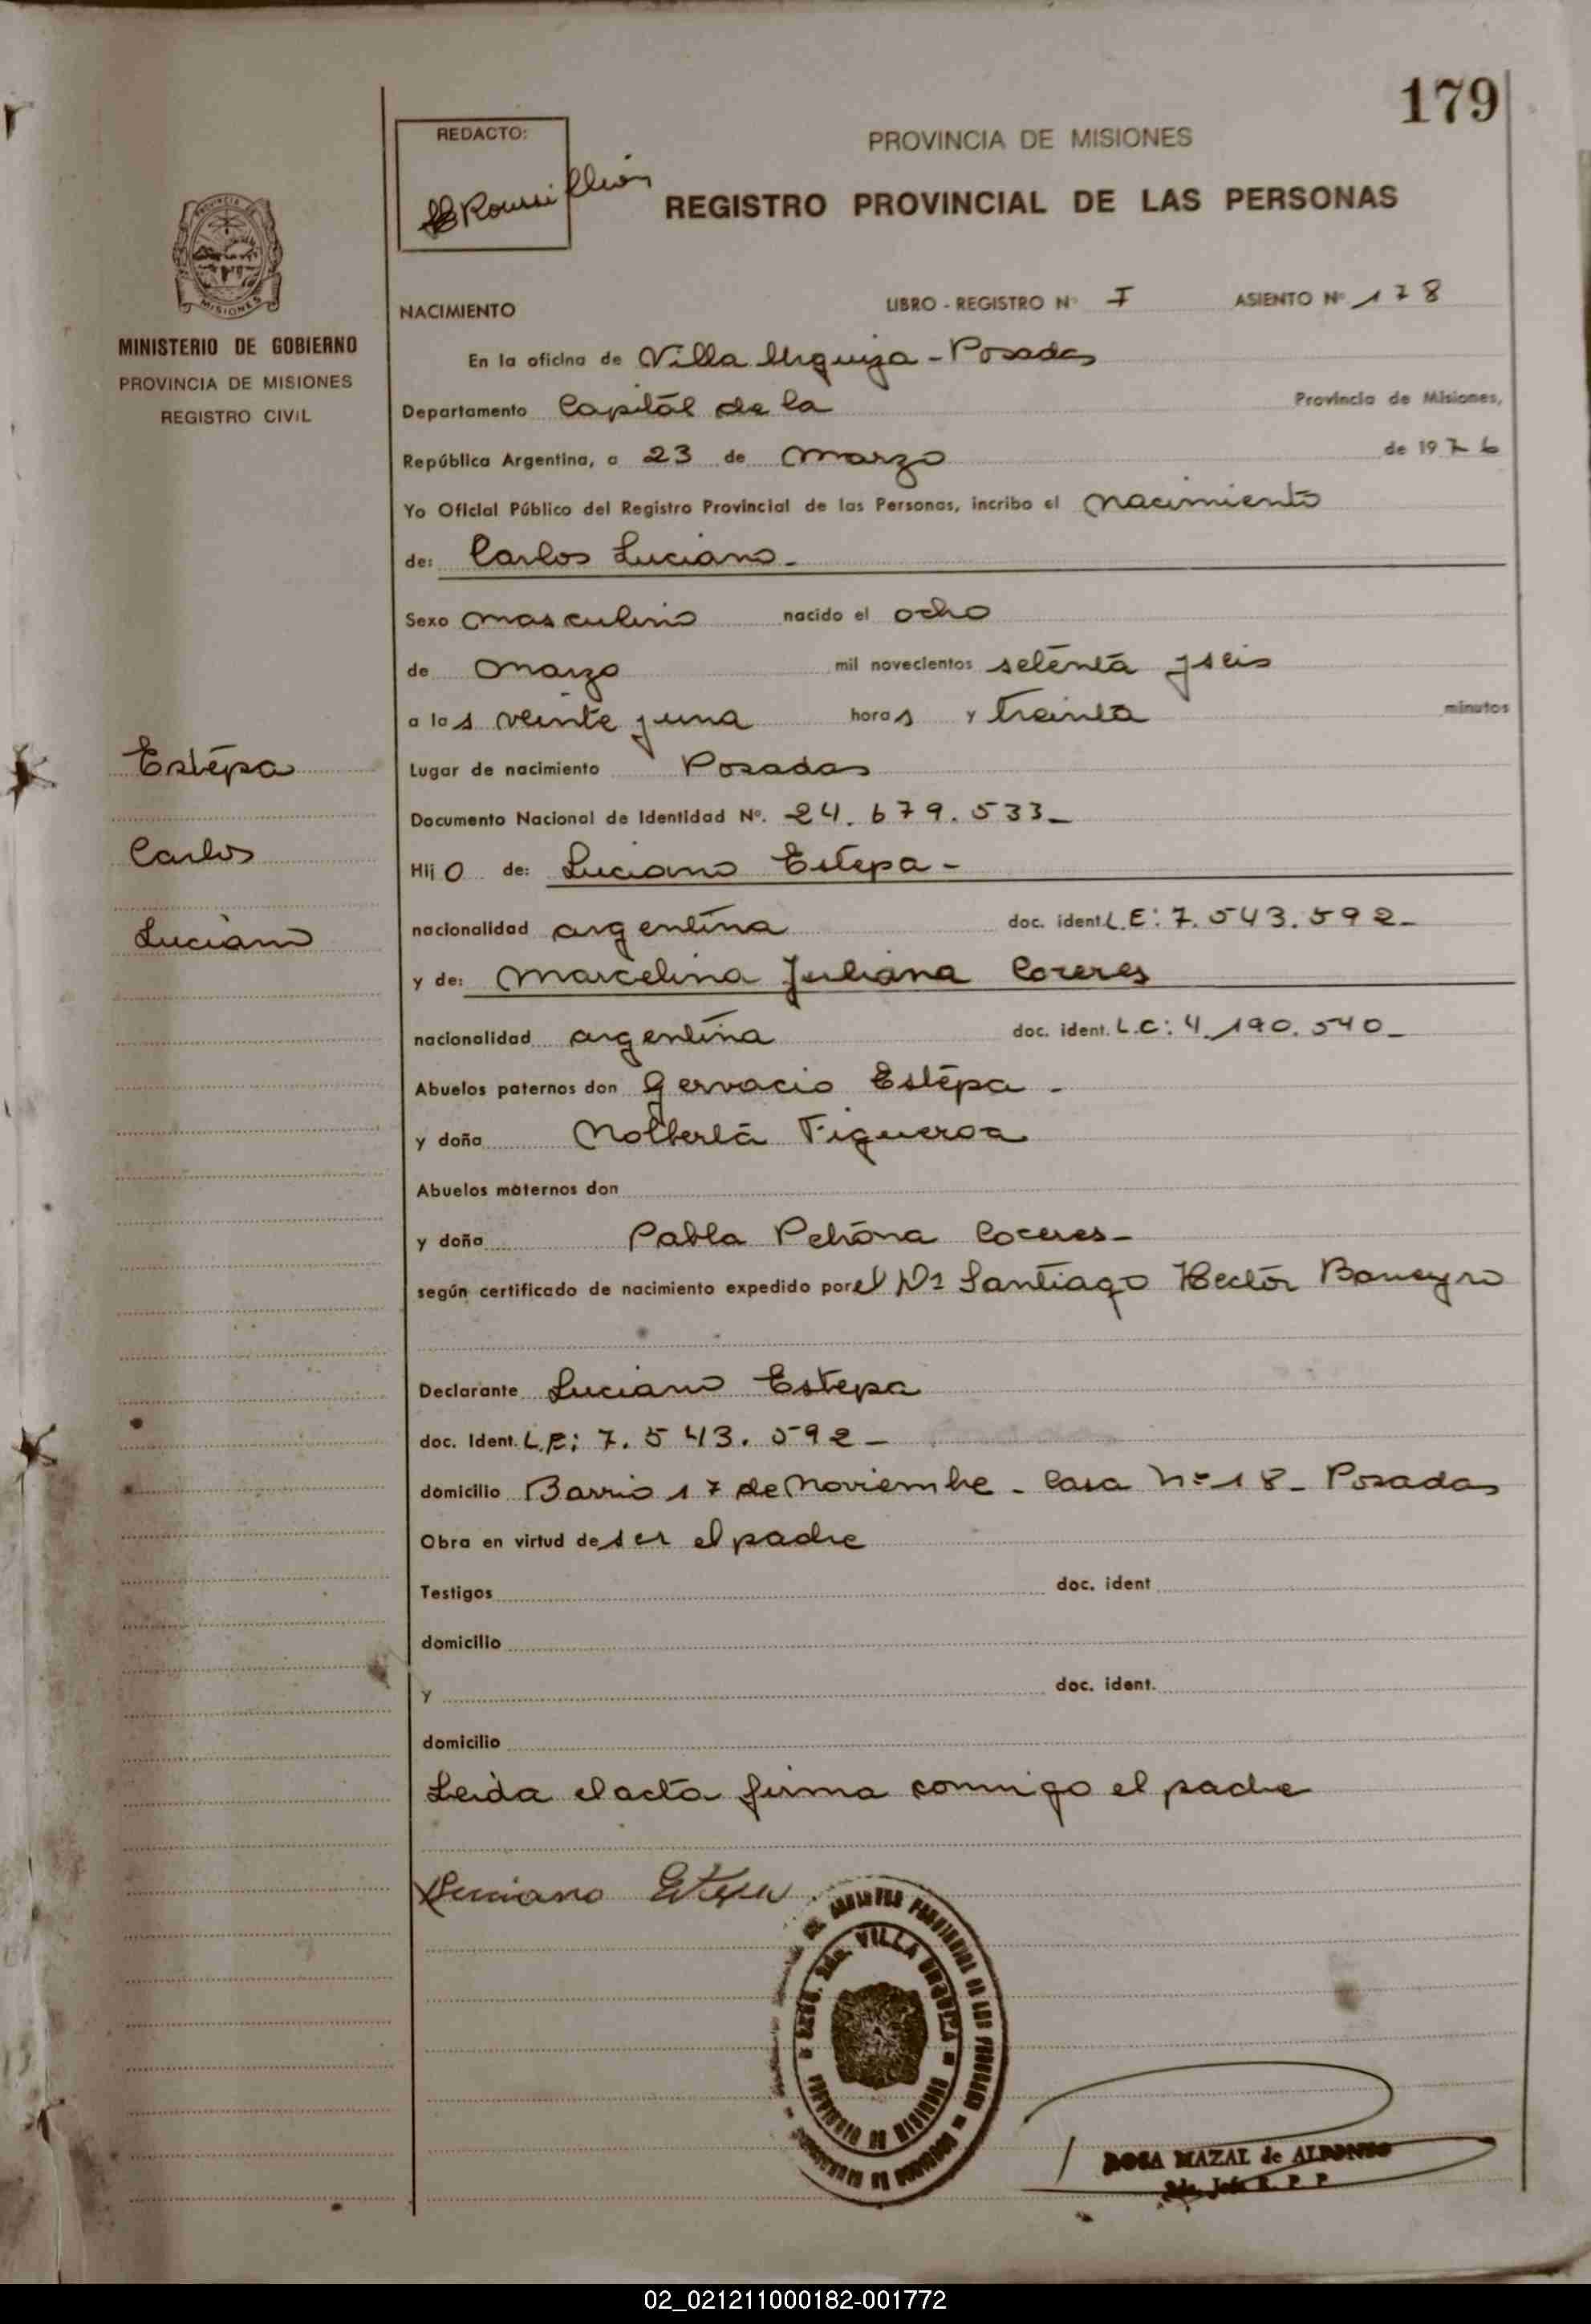 179
REDACTO:
PROVINCIA DE MISIONES
REGISTRO PROVINCIAL DE LAS PERSONAS
MISIONES
MINISTERIO DE GOBIERNO
PROVINCIA DE MISIONES
REGISTRO CIVIL
NACIMIENTO LIBRO - REGISTRO Nº I ASIENTO Nº 178
En la oficina de Villa Urquiza - Posadas
Departamento Capital de la Provincia de Misiones,
República Argentina, a 23 de Marzo de 1976
Yo Oficial Público del Registro Provincial de las Personas, incribo el nacimiento
de: Carlos Luciano-
Sexo masculino nacido el ocho
de Marzo mil novecientos setenta y seis
a las veinte y una horas y treinta minutos
Estepa
Carlos
Luciano
Lugar de nacimiento Posadas
Documento Nacional de Identidad Nº. 24.679.533-
Hijo de: Luciano Estepa-
nacionalidad argentina doc. ident L.E: 7.543.592-
y de: Marcelina Juliana Coceres
nacionalidad argentina doc. ident. L.C: 4.190.540-
Abuelos paternos don Gervacio Estepa-
y doña Nolberta Figueroa
Abuelos maternos don
y doña Pabla Petrona Coceres-
según certificado de nacimiento expedido por el Dr Santiago Hector
Declarante Luciano Estepa
doc. Ident. L.E: 7.543.592-
domicilio Barrio 17 de Noviembre - Casa Nº 18- Posadas
Obra en virtud de ser el padre
Testigos doc. ident
domicilio
y doc. ident.
domicilio
Leida el acta firma conmigo el padre
Luciano Estepa
VILLA URQUIZA
ROSA MAZAL de ALFONSO
R. P. P.
02_021211000182-001772